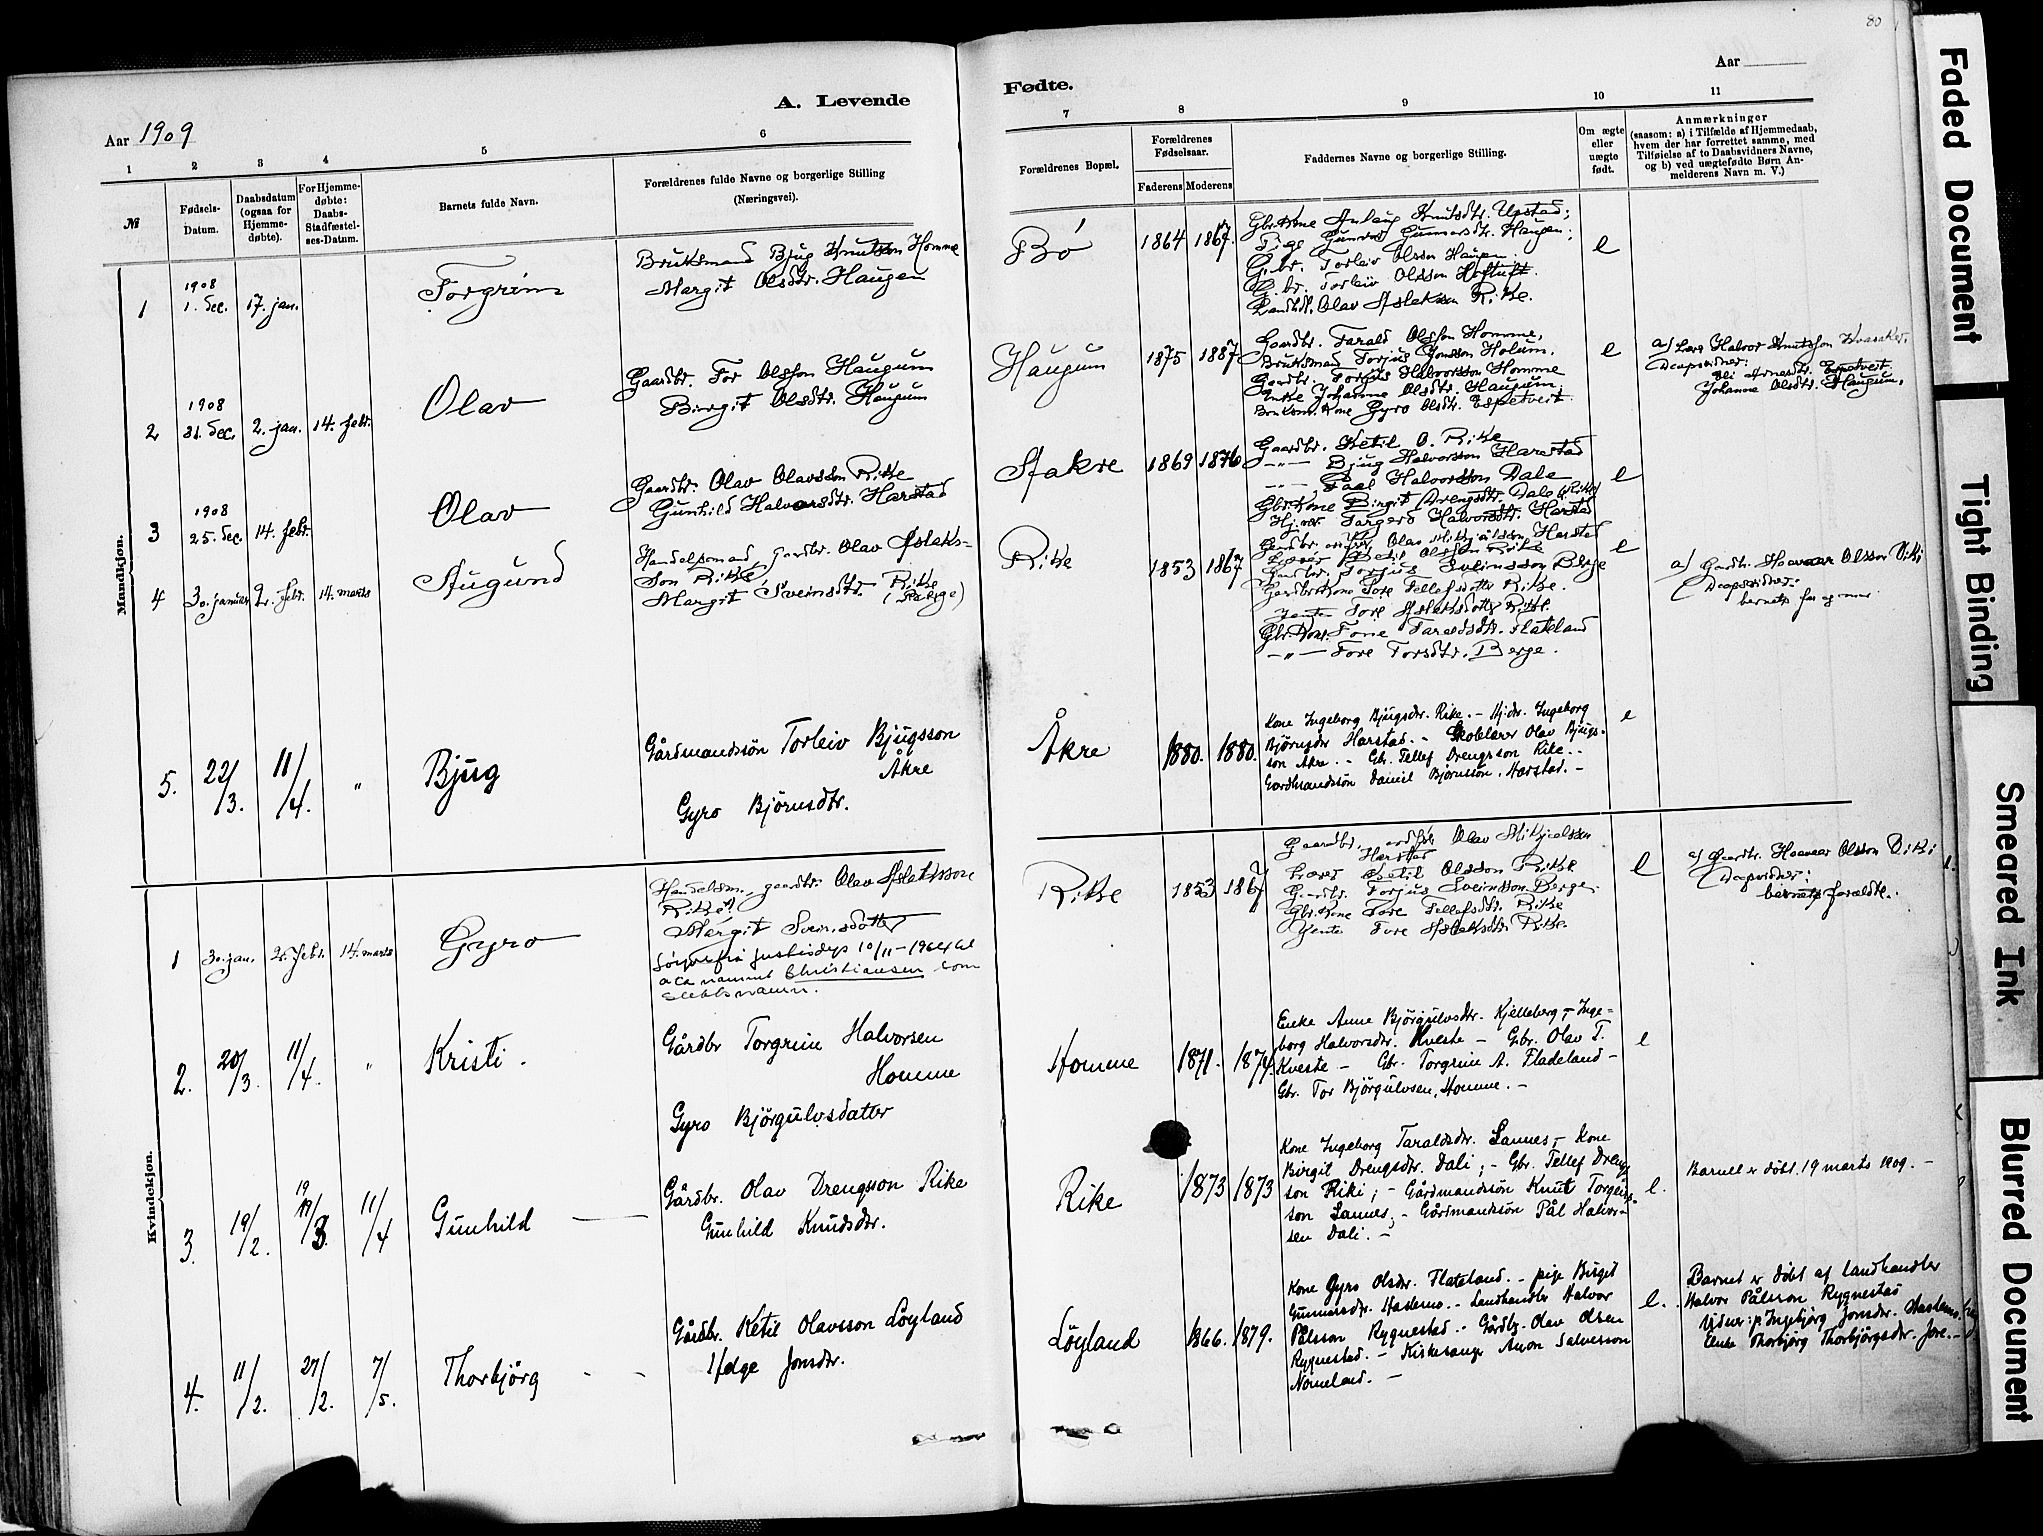 80
A. Levende
Fødte.
Aar 1909
Aar
1 2 3 4 5 6
7 8 9 10 11
№
Fødsels-Datum.
Daabsdatum (ogsaa for Hjemmedøbte).
For Hjemmedøbte: Daabs-Stadfæstelses-Datum.
Barnets fulde Navn.
Forældrenes fulde Navne og borgerlige Stilling (Næringsvei).
Forældrenes Bopæl.
Forældrenes Fødselsaar.
Faderens Moderens
Faddernes Navne og borgerlige Stilling.
Om ægte eller uægte født.
Anmærkninger
(saasom: a) i Tilfælde af Hjemmedaab, hvem der har forrettet samme, med Tilføielse af to Daabsvidners Navne, og b) ved uægtefødte Børn Anmelderens Navn m. V.)
Mandkjøn.
1 1908 1. Dec. 17. jan. Torgrim
Bruksmand Bjug Knutson Homme
Margit Olsdtr. Haugen
Bø 1864 1867.
Gbr.kone Knutsdtr.
Pige Gunnarsdtr. Haugen;
G.br. Torleiv Olsson Haugen.
G.br. Torleiv Olsson
Landhdl. Olav Aslakson Rike.
e
2 1908 31. Dec. 2. jan. 14. febr. Olav
Gaardbr. Tor Olsson Haugum
Birgit Olsdtr. Haugum
Haugum 1875 1887
Gaardbr. Tarald Olsson Homme,
Bruksmad Torjus Jonsson Holum.
Gardbr. Torjus Halvorsson Homme
Enke Johanne Olsdtr. Haugum;
Bruksm. kone Gyro Olsdtr. Espetveit
e
a) Lær. Halvor Knutsson
Daapsvidner:
Johanne Olsdtr. Haugum.
3 1908 25. Dec. 14. febr. Olav
Gaardbr. Olav Olavsson Rike
Gunhild Halvorsdtr. Harstad
1869 1876
Gaardbr. Ketil O. Rike
—„— Bjug Halvorsson Harstad
—„— Paal Halvorsson Dale
Gbr.kone Birgit Drengsdtr. Dale (Rike)
Targerd Halvorsdtr. Harstad
e
4 30. januar 2. febr. 14. marts Augund
Handelsmad, gardbr. Olav Aslaks-
son Rike
Margit Sveinsdtr. Rike
Rike 1853 1867
Olav Harstad
Ketil Olsson Rike
Gardbr. Torjus Sveinsson Berge
Gardbr.kone Tore Tellefsdotter Rike.
Jente Tore Aslaksdotter Rike.
Gbr.kone Tone Taraldsdtr. Flateland
—„— Tore Torsdtr. Berge.
e
a) Gardbr. Hoavaar Olsson Viki
Daapsvidner:
5. 22/3. 11/4. „ Bjug
Gårdmandssön Torleiv Bjugsson
Åkre
Gyro Björnsdtr.
Åkre 1880. 1880.
Kone Ingeborg Bjugsdtr. Rike. – Hj.dr. Ingeborg
Björnsdr Harstad. – Skolelærer Olav Bjugs-
son Åkre. – Gbr. Tellef Drengsson Rike. –
Gardmandssön Daniel Björnsson, Harstad. –
e
Kvindekjøn.
1 30. jan. 2. febr. 14. marts Gyro
Handelsm., gaardbr. Olav Aslaksson
Rike
Margit Sveinsdotter
10/11 – 1964
Christiansen som
Rike 1853 1867
Gaardbr. Olav Mikjelsson
Harstad
Ketil Olsson Rike
Gardbr. Torjus Sveinsson Berge.
Gbr.kone Tore Tellefsdtr. Rike
Jente Tore Aslaksdtr Rike.
e
a) Gardbr. Hoavaar Olsson Viki
Dapsvidner:
2. 20/3. 11/4. „ Kristi.
Gårdbr Torgrim Halvorsen
Homme
Gyro Björgulvsdatter
Homme 1871. 1874.
Enke Anne Björgulvsdtr. Kjelleberg, – Inge-
borg Halvorsdr. Kveste – Gbr. Olav T.
Kveste – Gbr. Torgrim A. Fladeland –
Gbr. Tor Björgulvsen, Homme. –
e
3. 19/2. 19/3 11/4 Gunhild
Gårdbr. Olav Drengsson Rike
Gunhild Knudsdtr.
Rike 1873 1873
Kone Ingeborg Taraldsdtr. Sannes, – Kone
Birgit Drengsdtr. Dali; – Gbr. Tellef Dreng-
son Riki; – Gårdmandssön Knut Torgeirs-
son Sannes; – Gårdmandssön Pål Halvor-
sen Dali. –
e.
Barnet er döbt 19 marts 1909. –
4. 11/2. 27/2. 7/5. Thorbjörg
Gårdbr. Ketil Olavsson Löyland
Helge Jonsdtr.
Löyland 1866. 1879.
Kone Gyro Olsdtr. Flateland. – pige Birgit
Gunnarsdtr. Haslemo. – Landhandler Halvor
Pålsson Rygnestad. – Gårdbr. Olav Olsen
Rygnestad. – Kirkesanger Anon Salvesson
Nomeland. –
e.
Barnet er döbt af Landhandler
Halvor Pålsson Rygnestad
Vidner: p. Ingebjörg Jonsdr. Haslemo
Enke Thorbjörg Thorbjörgsdr. Jore. –
Faded Document
Tight Binding
Smeared Ink
Blurred Document